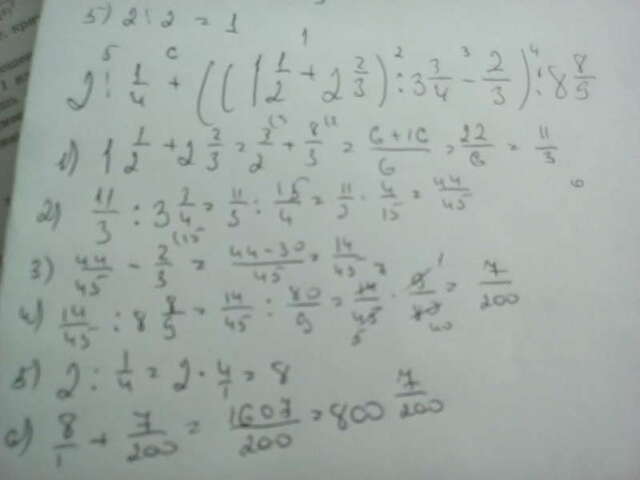 5) 2 : 2 = 1
2 : 1/4 + ((1 1/2 + 2 2/3) : 3 3/4 - 2/3) : 8 8/9
1) 1 1/2 + 2 2/3 = 3/2 + 8/3 = 6+16/6 = 22/6 = 11/3
2) 11/3 : 3 3/4 = 11/3 : 15/4 = 11/3 · 4/15 = 44/45
3) 44/45 - 2/3 = 44-30/45 = 14/45
4) 14/45 : 8 8/9 = 14/45 : 80/9 = 14/45 · 9/80 = 7/200
5) 2 : 1/4 = 2 · 4/1 = 8
6) 8/1 + 7/200 = 1607/200 = 800 7/200